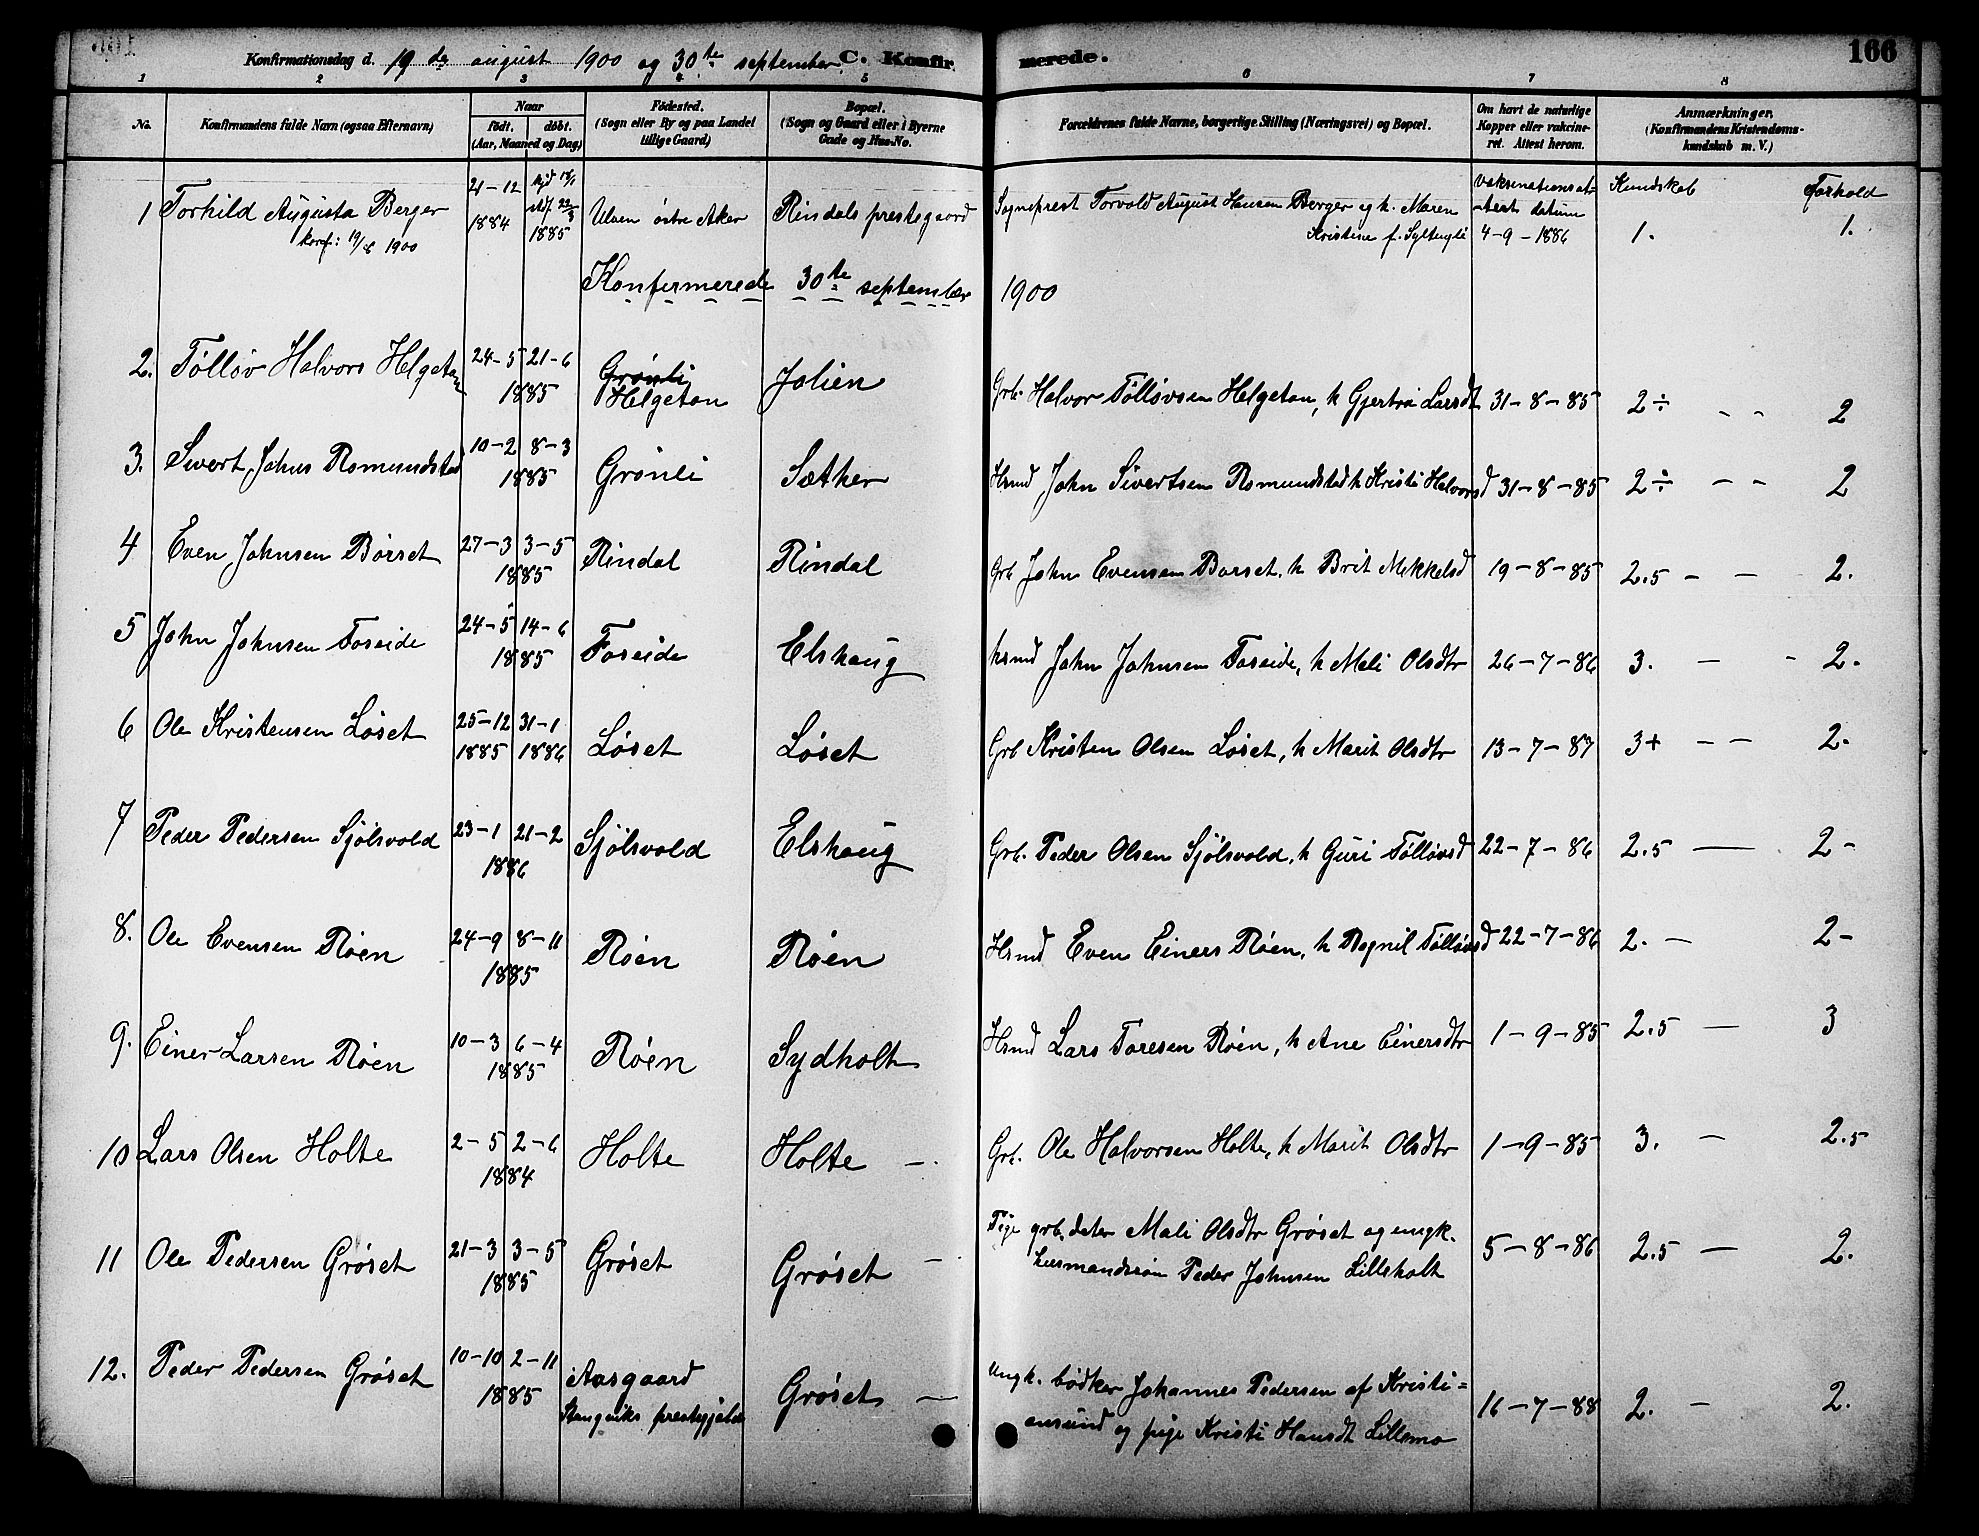 Konfirmationsdag d. 19de august 1900 og 30te september. C. Konfirmerede. 166
1 2 3 4 5 6 7 8
No. Konfirmandens fulde Navn (ogsaa Efternavn) Naar født. døbt. (Aar, Maaned og Dag) Fødested. (Sogn eller By og paa Landet tillige Gaard) Bopæl. (Sogn og Gaard eller i Byerne Gade og Hus-No. Forældrenes fulde Navne, borgerlige Stilling (Næringsvei) og Bopæl. Om havt de naturlige Kopper eller vakcineret. Attest herom. Anmærkninger. (Konfirmandens Kristendomskundskab m. V.)
Kundskab Forhold
1 Torhild Augusta Berger 21-12 1884 1885 Østre Aker Rindals prestegaard Sogneprest Torvald August Hansen Berger og h. Maren vaksinationsattest datum
konf: 19/8 1900 Kristine f. 4-9-1886 1. 1.
Konfermerede 30te september 1900
2. Tølløv Halvors Helgetan 24-5 21-6 1885 Grønli Helgetan Jolien Grb. Halvor Tølløvsen Helgetan, h Gjertrü Larsdt 31-8-85 2÷ - - 2
3. Sivert Johns Romundstad 10-2 8-3 1885 Grønli Sæther Hsmd John Sivertsen Romundstad h Kristi Halvorsd 31-8-85 2÷ - - 2
4 Even Johnsen Børset 27-3 3-5 1885 Rindal Rindal Grb John Evensen Børset. h Brit Mekkelsd 19-8-85 2.5 - - - 2.
5 John Johnsen Foseide 24-5 14-6 1885 Foseide Elshaug hsmd John Johnsen Foseide, h Mali Olsdtr 26-7-86 3. - - 2.
6 Ole Kristensen Løset 25-12 1885 31-1 1886 Løset Løset Grb Kristen Olsen Løset, h Marit Olsdtr 13-7-87 3+ - - 2.
7 Peder Pedersen Sjølsvold 23-1 21-2 1886 Sjølsvold Elshaug Grb. Peder Olsen Sjølsvold, h Guri Tølløvsd 22-7-86 2.5 - 2-
8. Ole Evensen Røen 24-9 8-11 1885 Røen Røen Hsmd Even Einers Røen, h Ragnil Tølløvsd 22-7-86 2. - 2-
9. Einer Larsen Røen 10-3 6-4 1885 Røen Sydholt Hsmd Lars Toresen Røen, h Ane Einersdtr 1-9-85 2.5 - 3
10 Lars Olsen Holte 2-5 2-6 1884 Holte Holte -. Grb. Ole Halvorsen Holte, h Marit Olsdtr 1-9-85 3. - 2.5
11 Ole Pedersen Grøset 21-3 3-5 1885 Grøset Grøset - Pige grb.dater Mali Olsdtr Grøset og ungk.
husmandssøn Peder Johnsen Lilleholt 5-8-86 2.5 - 2.
12. Peder Pedersen Grøset 10-10 2-11 1885 Aasgaard Stangviks prestegjeld Grøset - Ungk. bødker Johannes Pedersen af Kristi=
ansund og pige Kristi Hansdt Lillemo 16-7-88 2. - 2.